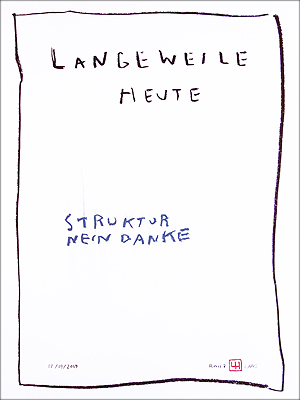 LANGEWEILE
HEUTE
STRUKTUR
NEIN DANKE